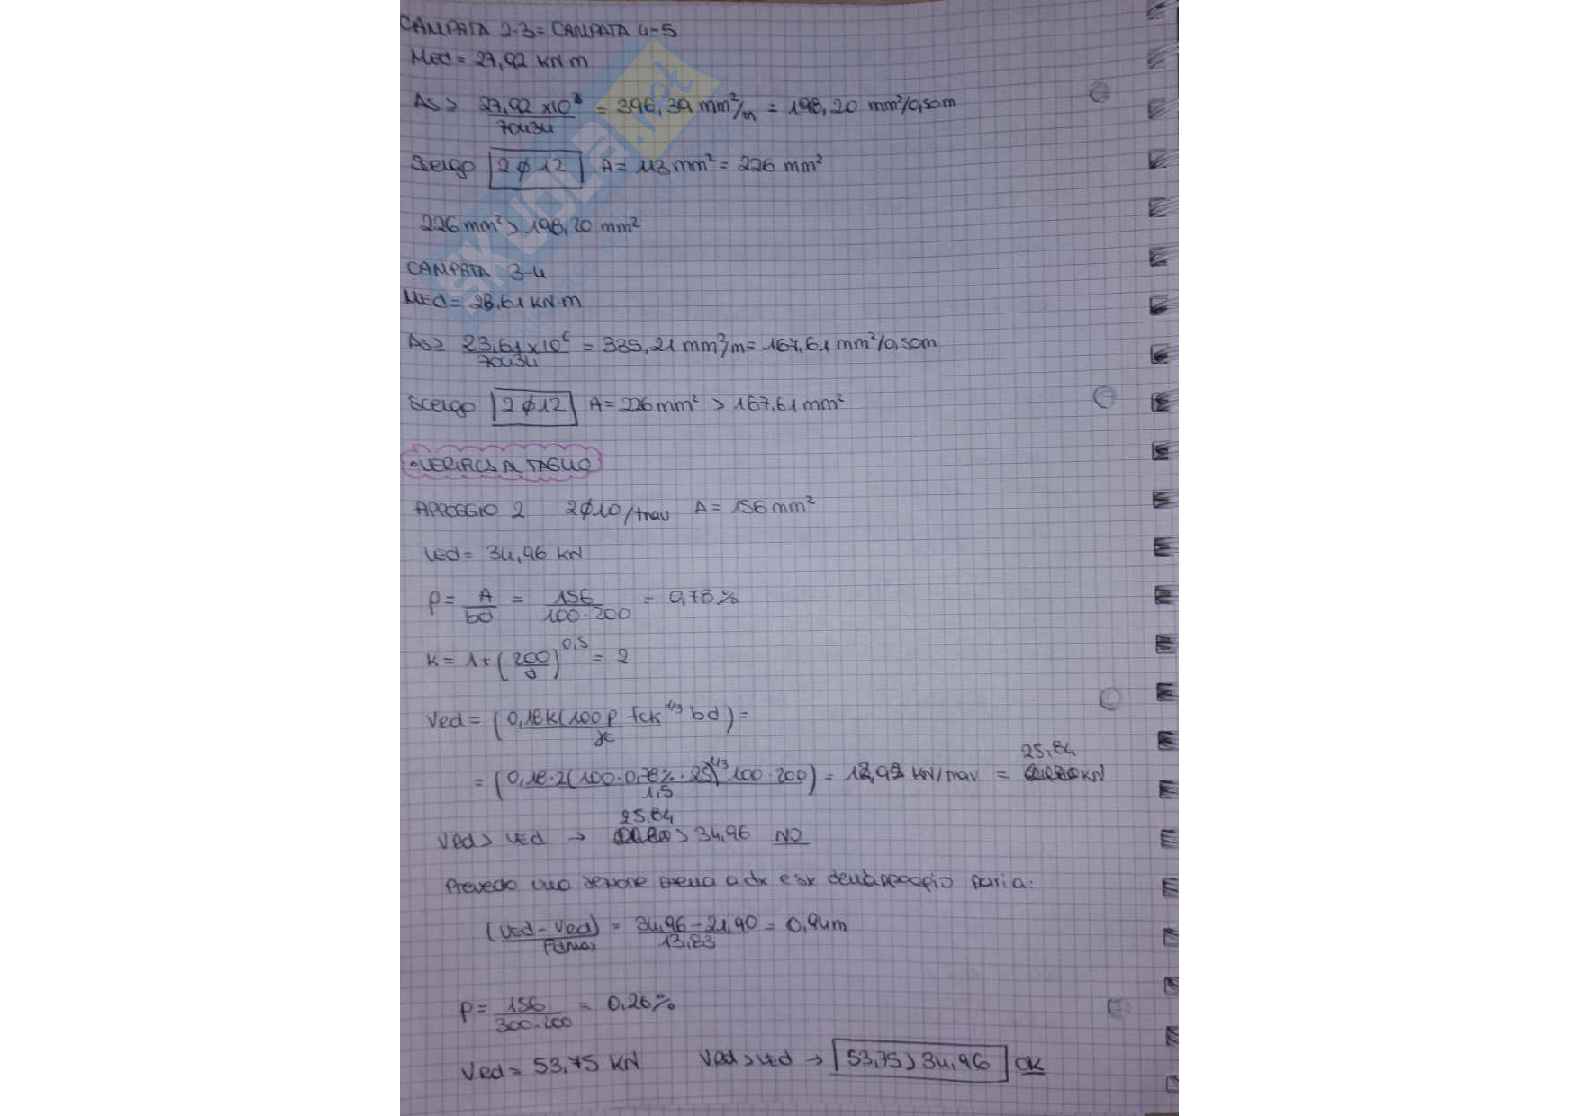 CAMPATA 2-3 = CAMPATA 4-5
Med = 27,92 kN m
As > 27,92 x10⁶ / 70434 = 396,39 mm²/m = 198,20 mm²/0,50m
Scelgo 2 ϕ 12 A = 113 mm² = 226 mm²
226 mm² > 198,20 mm²
CAMPATA 3-4
Med = 23,61 kN m
As ≥ 23,61 x10⁶ / 70434 = 335,21 mm²/m = 167,61 mm²/0,50m
Scelgo 2 ϕ 12 A = 226 mm² > 167,61 mm²
VERIFICA A TAGLIO
APPOGGIO 2 2ϕ10/trav A = 156 mm²
Ved = 34,96 kN
ρ = A / bd = 156 / 100·200 = 0,78 %
K = 1 + (200 / d)^0,5 = 2
Vrd = (0,18 K (100 ρ fck^1/3 bd) / γc) =
= (0,18·2(100·0,78%·25)^1/3 100·200 / 1,5) = 12,92 kN/trav = 25,84 kN
Vrd > Ved → 25,84 > 34,96 NO
Prevedo una sezione piena a dx e sx dell'appoggio pari a:
(Ved - Vrd) / = 34,96 - 21,90 / 13,83 = 0,94m
ρ = 156 / 300·200 = 0,26 %
Vrd = 53,75 kN Vrd > Ved → 53,75 > 34,96 OK
SKUOLA.net